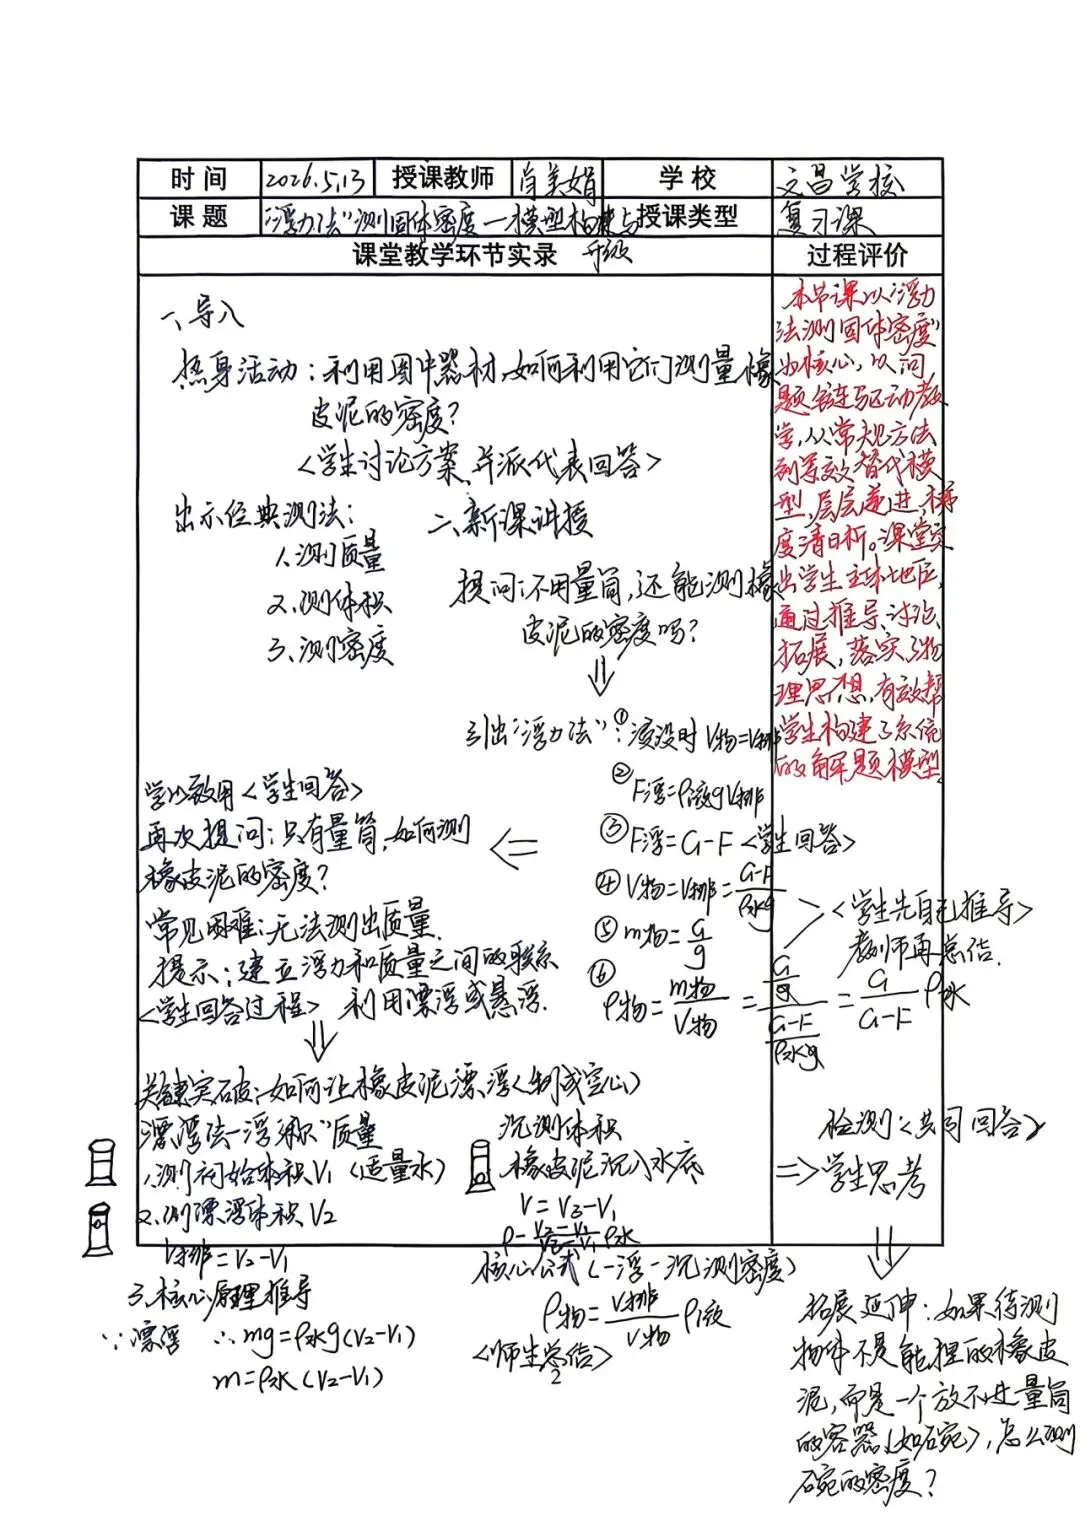 时间 2026.5.13 授课教师 肖美娟 学校 文昌学校
课题 “浮力法”测固体密度—模型构建与升级 授课类型 复习课
课堂教学环节实录 过程评价
一、导入
热身活动：利用图中器材，如何利用它们测量橡
皮泥的密度？
<学生讨论方案，并派代表回答>
出示经典测法：
1、测质量
2、测体积
3、测密度
二、新课讲授
提问：不用量筒，还能测橡
皮泥的密度吗？
⇓
引出“浮力法”：①浸没时 V物=V排
②F浮=ρ液gV排
③F浮=G-F <学生回答>
④V物=V排=(G-F)/(ρ水g)
⑤m物=G/g
> <学生先自己推导>
教师再总结.
⑥ρ物=m物/V物=(G/g)/((G-F)/(ρ水g))=G/(G-F) ρ水
⇐
学以致用<学生回答>
再次提问：只有量筒，如何测
橡皮泥的密度？
常见困难：无法测出质量.
提示：建立浮力和质量之间的联系
<学生回答过程> 利用漂浮或悬浮.
⇓
关键突破：如何让橡皮泥漂浮(制成空心)
漂浮法—浮“称”质量
1.测初始体积V1 (适量水)
2.测漂浮体积V2
V排=V2-V1
3.核心原理推导
∵漂浮 ∴mg=ρ水g(V2-V1)
m=ρ水(V2-V1)
沉测体积
橡皮泥沉入水底
V=V3-V1
ρ=(V2-V1)/(V3-V1) ρ水
核心公式(一浮一沉测密度)
ρ物=V排/V物 ρ液
<师生总结>
2
检测<共同回答>
⇒学生思考
⇓
拓展延伸：如果待测
物体不是能捏的橡皮
泥，而是一个放不进量筒
的容器(如碗)，怎么测
碗的密度？
本节课以“浮力
法测固体密度”
为核心，以问
题链驱动教
学，从常规方法
到等效替代模
型，层层递进，梯
度清晰。课堂突
出学生主体地位，
通过推导、讨论、
拓展，落实了物
理思想，有效帮
学生构建了系统
的解题模型.